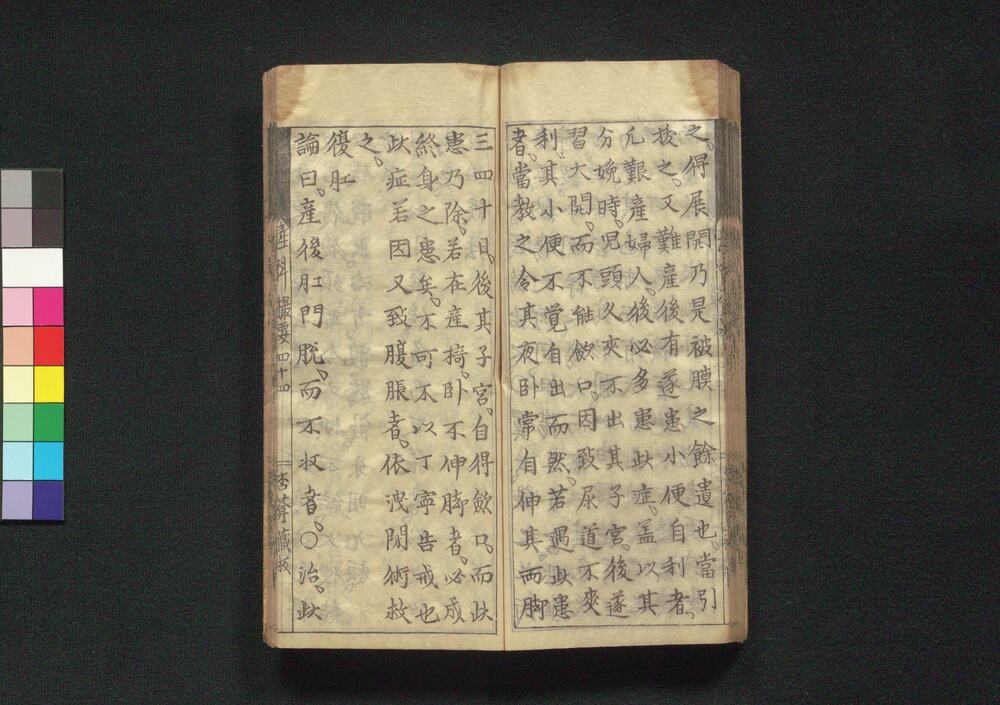 之。得展開乃是被膜之餘遺也。當引
拔之。又難産後有遂患小便自利者。
凡艱産婦人。後必多患此症。盖以其
分娩時。児頭久夾不出其子宮。後遂
習大開。而不能歛口。因致尿道不爽
利。其小便不覚自出而然。若遇此患
者。當教之令其夜卧常自伸其両脚
三四十日。後其子宮。自得歛口。而此
患乃除。若在産椅。卧不伸脚者。必成
終身之患矣。不可不以丁寧告戒也
此症若因又致腹脹者。依洩閇術救
之。
復肛
論曰。産後肛門脱。而不収者。○治。此
産科 撮要 四十四
藏板